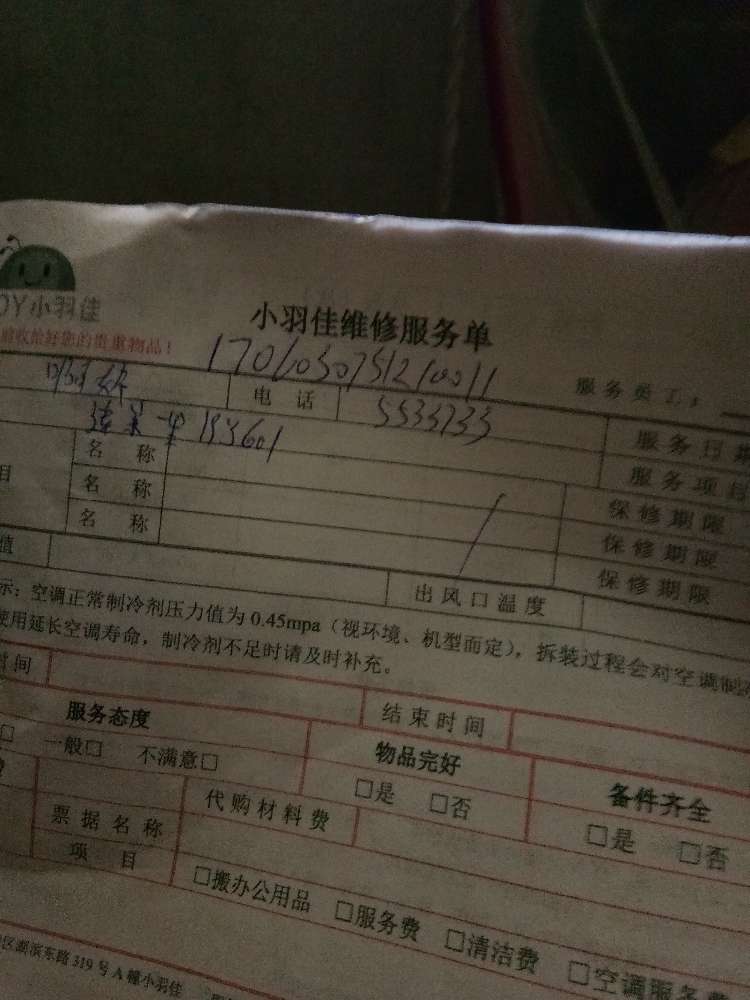 OY小羽佳
小羽佳维修服务单
收拾好您的贵重物品！
服务员工：
1706030751210011
电话
5533733
服务日期
153601
服务项目
目
名称
保修期限
名称
保修期限
名称
保修期限
值
出风口温度
示：空调正常制冷剂压力值为0.45mpa（视环境、机型而定），拆装过程会对空调制
使用延长空调寿命，制冷剂不足时请及时补充。
时间
结束时间
服务态度
物品完好
备件齐全
□ 一般□ 不满意□
□是 □否
□是 □否
代购材料费
票据名称
项目
□搬办公用品 □服务费 □清洁费 □空调服务费
区湖滨东路319号A幢小羽佳